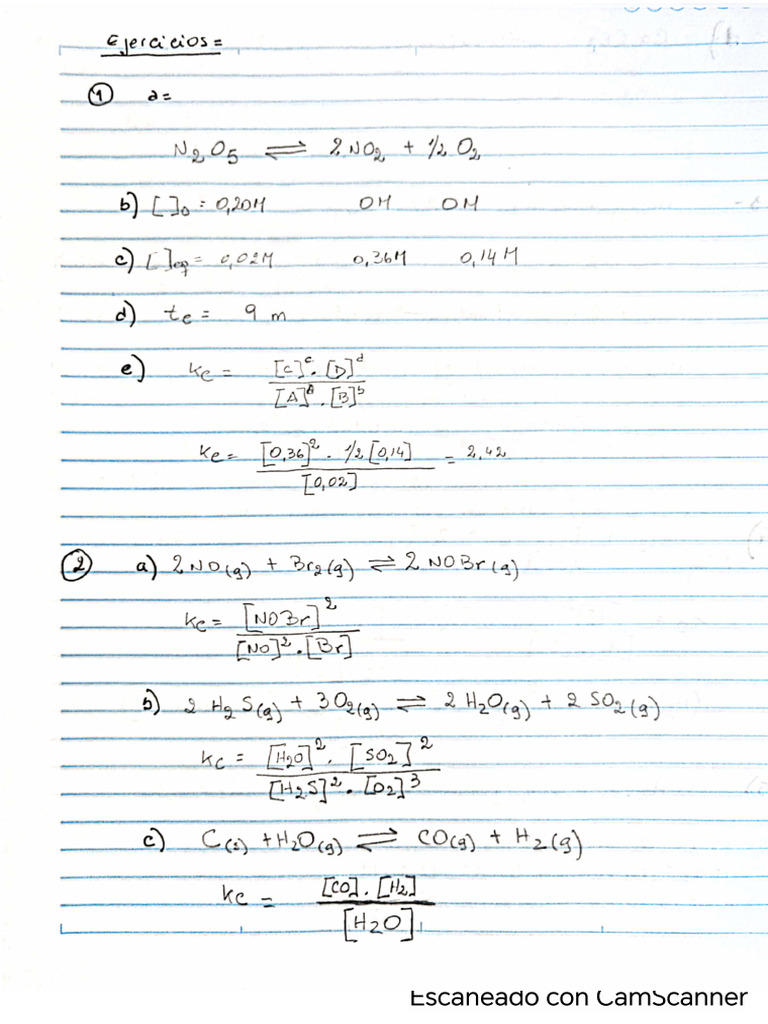 Ejercicios =
① a=
N₂O₅ ⇌ 2 NO₂ + 1/2 O₂
b) [ ]₀ = 0,20M 0M 0M
c) [ ]eq = 0,02M 0,36M 0,14M
d) tₑ = 9 m
e) Kc = [C]ᶜ · [D]ᵈ / [A]ᵃ · [B]ᵇ
Ke = [0,36]² · 1/2 [0,14] / [0,02] = 2,42
② a) 2 NO(g) + Br₂(g) ⇌ 2 NOBr(g)
Kc = [NOBr]² / [NO]² · [Br]
b) 2 H₂S(g) + 3 O₂(g) ⇌ 2 H₂O(g) + 2 SO₂(g)
Kc = [H₂O]² · [SO₂]² / [H₂S]² · [O₂]³
c) C(s) + H₂O(g) ⇌ CO(g) + H₂(g)
Kc = [CO] · [H₂] / [H₂O]
Escaneado con CamScanner